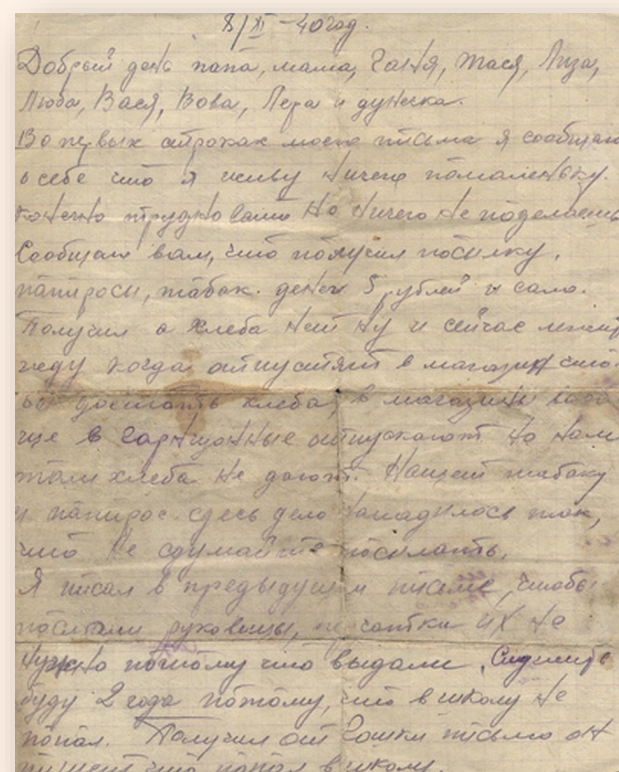 8/XI-40год.
Добрый день папа, мама, Ганя, Тася, Лиза,
Люба, Вася, Вова, Лера и дунечка.
Во первых строках моего письма я сообщаю
о себе что я живу ничего помаленьку.
конечно трудновато но ничего не поделаешь
Сообщаю вам, что получил посылку,
папиросы, табак. денег 5 рублей и сало.
Получил а хлеба нет ну и сейчас
жду когда отпустят в магазин что
бы достать хлеба, в магазины
ще в гарнизонные отпускают но нам
там хлеба не дают. Насчет табаку
и папирос здесь дело наладилось так,
что не сдумайте посылать.
Я писал в предыдущем письме, чтобы
послали руковицы, перчатки их не
нужно потому что выдали.
буду 2 года потому, что в школу не
попал. Получил от Гошки письмо он
пишет что попал в школу.